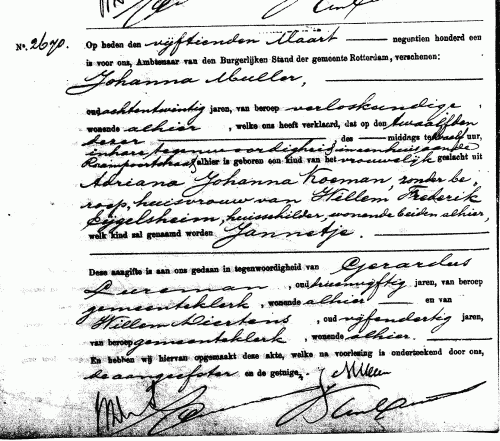 No. 2670. Op heden den vijftienden Maart negentien honderd een
is voor ons, Ambtenaar van den Burgerlijken Stand der gemeente Rotterdam, verschenen:
Johanna Muller,
oud achtentwintig jaren, van beroep verloskundige,
wonende alhier, welke ons heeft verklaard, dat op den twaalfden
dezer des middags te half uur,
in hare tegenwoordigheid, in een huis aan de
alhier is geboren een kind van het vrouwelijk geslacht uit
Adriana Johanna Kooman, zonder be-
roep, huisvrouw van Willem Frederik
Eijgelsheim, huisschilder, wonende beiden alhier,
welk kind zal genaamd worden Jannetje.
Deze aangifte is aan ons gedaan in tegenwoordigheid van Gerardus
Bureman, oud tweeenvijftig jaren, van beroep
gemeenteklerk, wonende alhier en van
Willem Mertens, oud vijfendertig jaren,
van beroep gemeenteklerk, wonende alhier.
En hebben wij hiervan opgemaakt deze akte, welke na voorlezing is onderteekend door ons,
de aangeefster en de getuige.